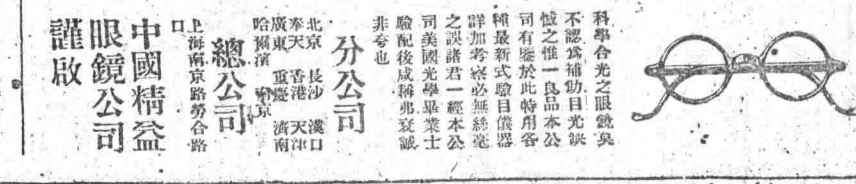 科學合光之眼鏡莫
不認為補助目光缺
憾之惟一良品本公
司有鑒於此特用各
種最新式驗目儀器
詳加考察必無絲毫
之誤諸君一經本公
司美國光學畢業士
驗配後咸稱弗衰誠
非夸也
分公司
北京 長沙 漢口
奉天 香港 天津
廣東 重慶 濟南
哈爾濱 南京
總公司
上海南京路勞合路
口
中國精益
眼鏡公司
謹啟